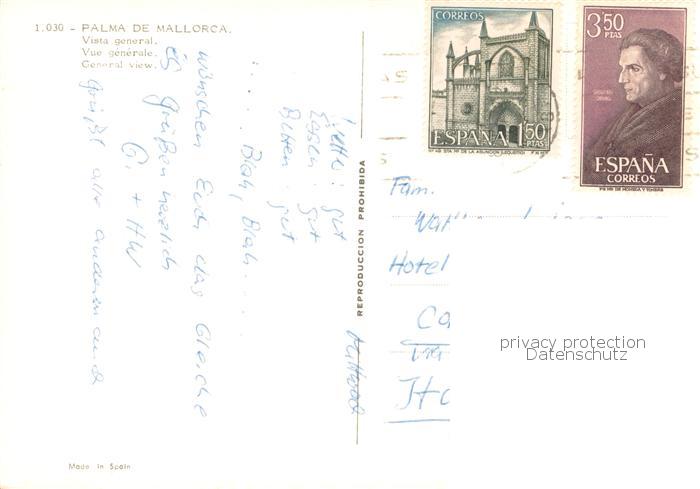 1.030 - PALMA DE MALLORCA.
Vista general.
Vue générale.
General view.
Mittwoch
Wetter: gut
Essen: gut
Betten: gut
..... Blah, Blah....
wünschen Euch das Gleiche
& Grüßen herzlich
G. + HW
Grüßt alle anderen
REPRODUCCION PROHIBIDA
Made in Spain
CORREOS
ESPAÑA 1'50 PTAS
3'50 PTAS
ESPAÑA
CORREOS
Fam.
Hotel
privacy protection
Datenschutz